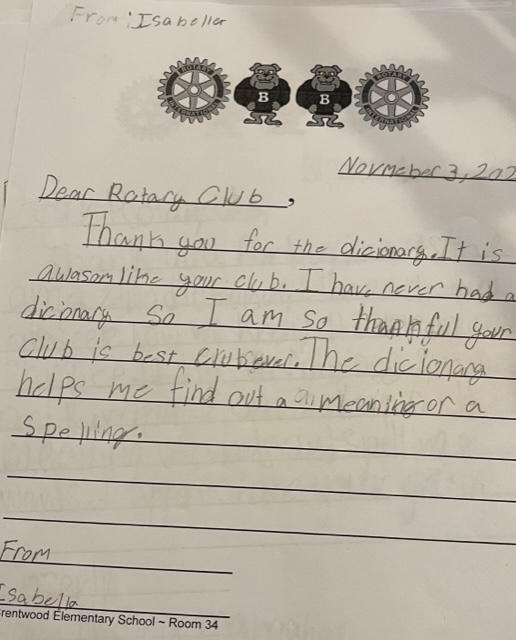 From: Isabella
ROTARY INTERNATIONAL
B
B
ROTARY INTERNATIONAL
Novmeber 3, 202
Dear Rotary Club,
Thank you for the dicionary. It is
awasom like your club. I have never had a
dicionary so I am so thankful your
club is best club ever. The dicionary
helps me find out a a meaning or a
spelling.
From
Isabella
rentwood Elementary School ~ Room 34